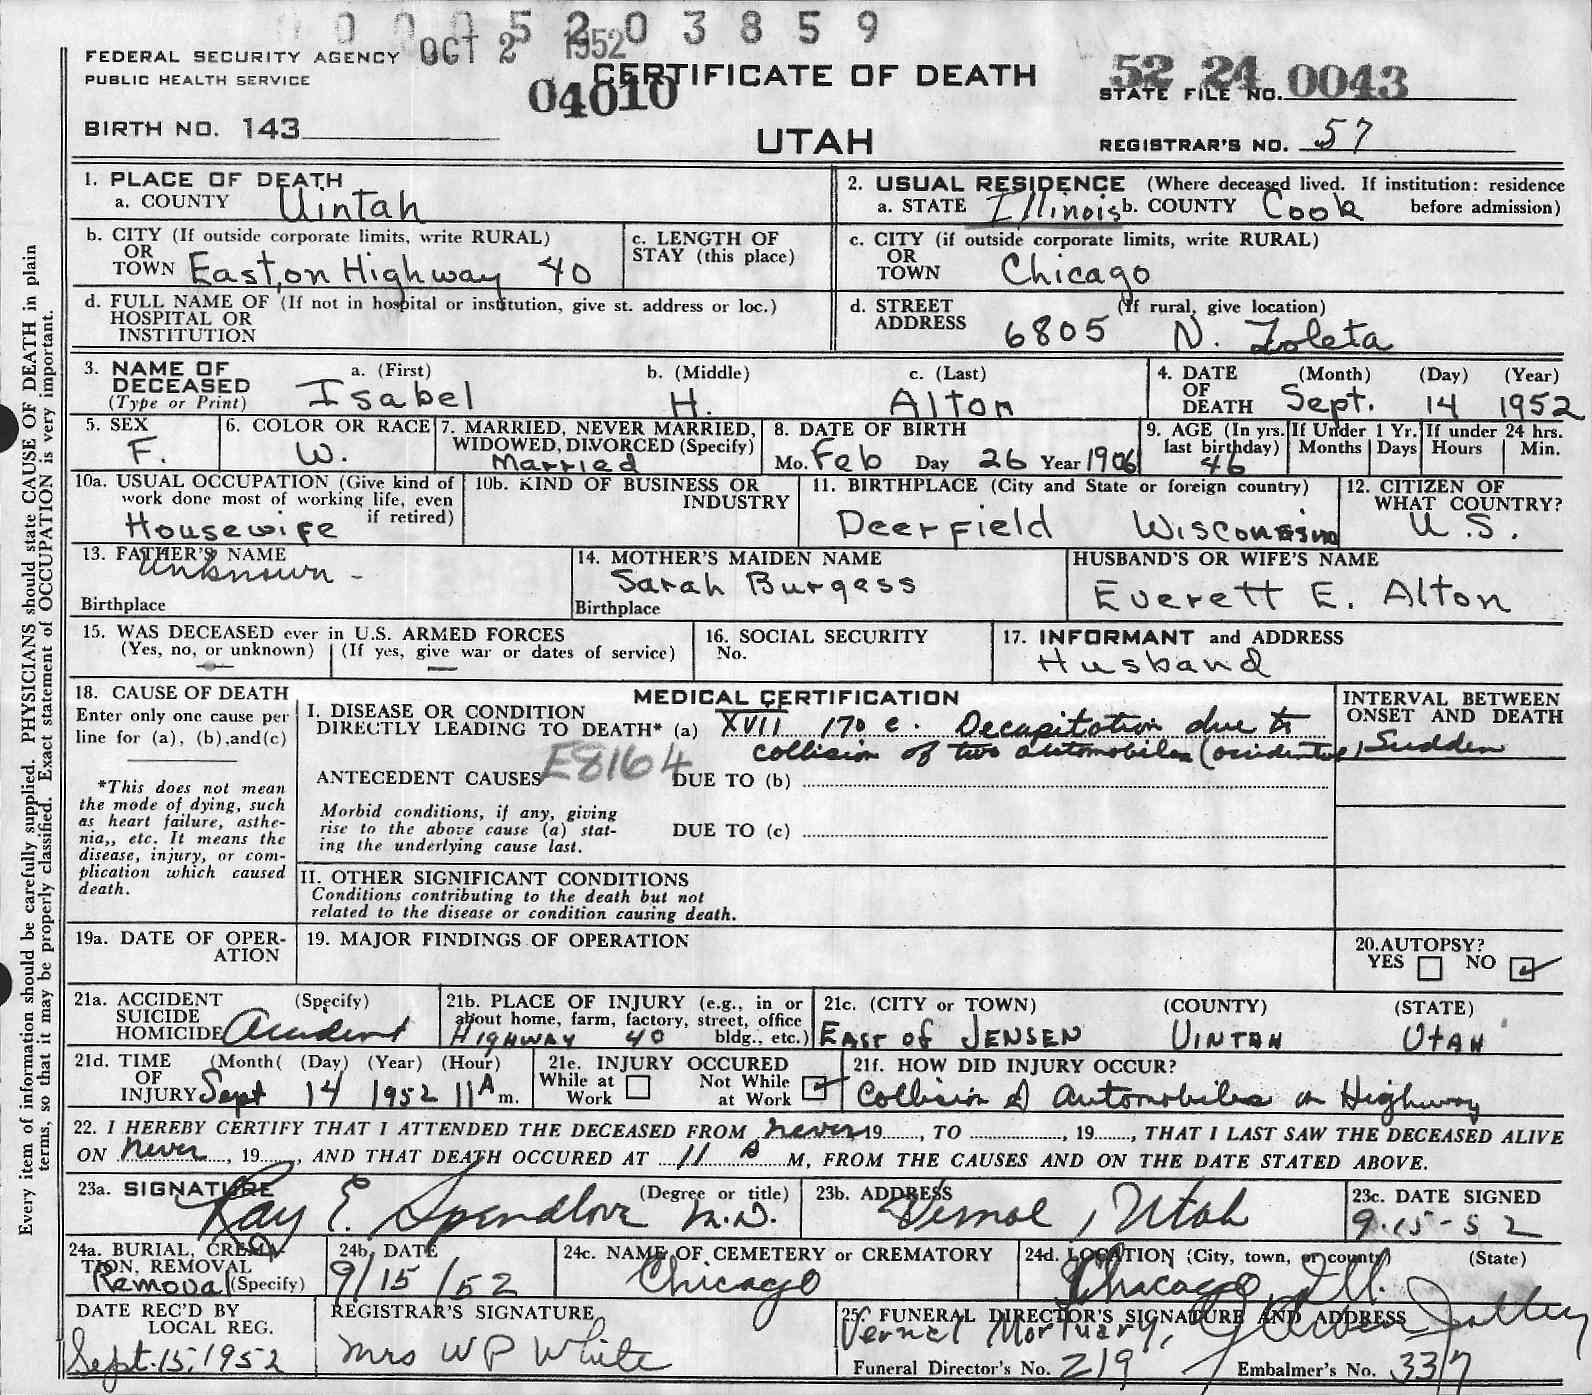 0 0 0 5 2 0 3 8 5 9
FEDERAL SECURITY AGENCY OCT 2 1952
PUBLIC HEALTH SERVICE
CERTIFICATE OF DEATH
04010
52 24 0043
STATE FILE NO.
BIRTH NO. 143
UTAH
REGISTRAR'S NO. 57
1. PLACE OF DEATH
a. COUNTY Uintah
2. USUAL RESIDENCE (Where deceased lived. If institution: residence before admission)
a. STATE Illinois b. COUNTY Cook
b. CITY (If outside corporate limits, write RURAL)
OR
TOWN East, on Highway 40
c. LENGTH OF
STAY (this place)
c. CITY (if outside corporate limits, write RURAL)
OR
TOWN Chicago
d. FULL NAME OF (If not in hospital or institution, give st. address or loc.)
HOSPITAL OR
INSTITUTION
d. STREET (If rural, give location)
ADDRESS 6805 N.
3. NAME OF
DECEASED
(Type or Print)
a. (First) b. (Middle) c. (Last)
Isabel H. Alton
4. DATE (Month) (Day) (Year)
OF
DEATH Sept. 14 1952
5. SEX
F.
6. COLOR OR RACE
W.
7. MARRIED, NEVER MARRIED,
WIDOWED, DIVORCED (Specify)
Married
8. DATE OF BIRTH
Mo. Feb Day 26 Year 1906
9. AGE (In yrs.
last birthday)
46
If Under 1 Yr.
Months Days
If under 24 hrs.
Hours Min.
10a. USUAL OCCUPATION (Give kind of
work done most of working life, even
if retired)
Housewife
10b. KIND OF BUSINESS OR
INDUSTRY
11. BIRTHPLACE (City and State or foreign country)
Deerfield Wisconsin
12. CITIZEN OF
WHAT COUNTRY?
U.S.
13. FATHER'S NAME
Unknown -
Birthplace
14. MOTHER'S MAIDEN NAME
Sarah Burgess
Birthplace
HUSBAND'S OR WIFE'S NAME
Everett E. Alton
15. WAS DECEASED ever in U.S. ARMED FORCES
(Yes, no, or unknown) (If yes, give war or dates of service)
16. SOCIAL SECURITY
No.
17. INFORMANT and ADDRESS
Husband
18. CAUSE OF DEATH
Enter only one cause per
line for (a), (b),and(c)
*This does not mean
the mode of dying, such
as heart failure, asthe-
nia,, etc. It means the
disease, injury, or com-
plication which caused
death.
MEDICAL CERTIFICATION
I. DISEASE OR CONDITION
DIRECTLY LEADING TO DEATH* (a) XVII 170 c. Decapitation due to
collision of two automobiles (accidental)
E8164
ANTECEDENT CAUSES DUE TO (b)
Morbid conditions, if any, giving
rise to the above cause (a) stat-
ing the underlying cause last.
DUE TO (c)
II. OTHER SIGNIFICANT CONDITIONS
Conditions contributing to the death but not
related to the disease or condition causing death.
INTERVAL BETWEEN
ONSET AND DEATH
Sudden
19a. DATE OF OPER-
ATION
19. MAJOR FINDINGS OF OPERATION
20.AUTOPSY?
YES NO ✓
21a. ACCIDENT (Specify)
SUICIDE
HOMICIDE Accident
21b. PLACE OF INJURY (e.g., in or
about home, farm, factory, street, office
bldg., etc.)
HIGHWAY 40
21c. (CITY or TOWN) (COUNTY) (STATE)
EAST of JENSEN UINTAH UTAH
21d. TIME (Month( (Day) (Year) (Hour)
OF
INJURY Sept 14 1952 11A m.
21e. INJURY OCCURED
While at
Work
Not While
at Work ✓
21f. HOW DID INJURY OCCUR?
Collision of Automobiles on Highway
22. I HEREBY CERTIFY THAT I ATTENDED THE DECEASED FROM never 19......, TO ..............., 19......, THAT I LAST SAW THE DECEASED ALIVE
ON never, 19......, AND THAT DEATH OCCURED AT 11 A M, FROM THE CAUSES AND ON THE DATE STATED ABOVE.
23a. SIGNATURE (Degree or title)
Ray E. Spendlove M.D.
23b. ADDRESS
Vernal, Utah
23c. DATE SIGNED
9-15-52
24a. BURIAL, CREMA-
TION, REMOVAL
Removal (Specify)
24b. DATE
9/15/52
24c. NAME OF CEMETERY or CREMATORY
Chicago
24d. LOCATION (City, town, or county) (State)
Chicago, Ill.
DATE REC'D BY
LOCAL REG.
Sept. 15, 1952
REGISTRAR'S SIGNATURE
Mrs W P White
25. FUNERAL DIRECTOR'S SIGNATURE AND ADDRESS
Vernal Mortuary,
Funeral Director's No. 219 Embalmer's No. 337
Every item of information should be carefully supplied. PHYSICIANS should state CAUSE OF DEATH in plain
terms, so that it may be properly classified. Exact statement of OCCUPATION is very important.